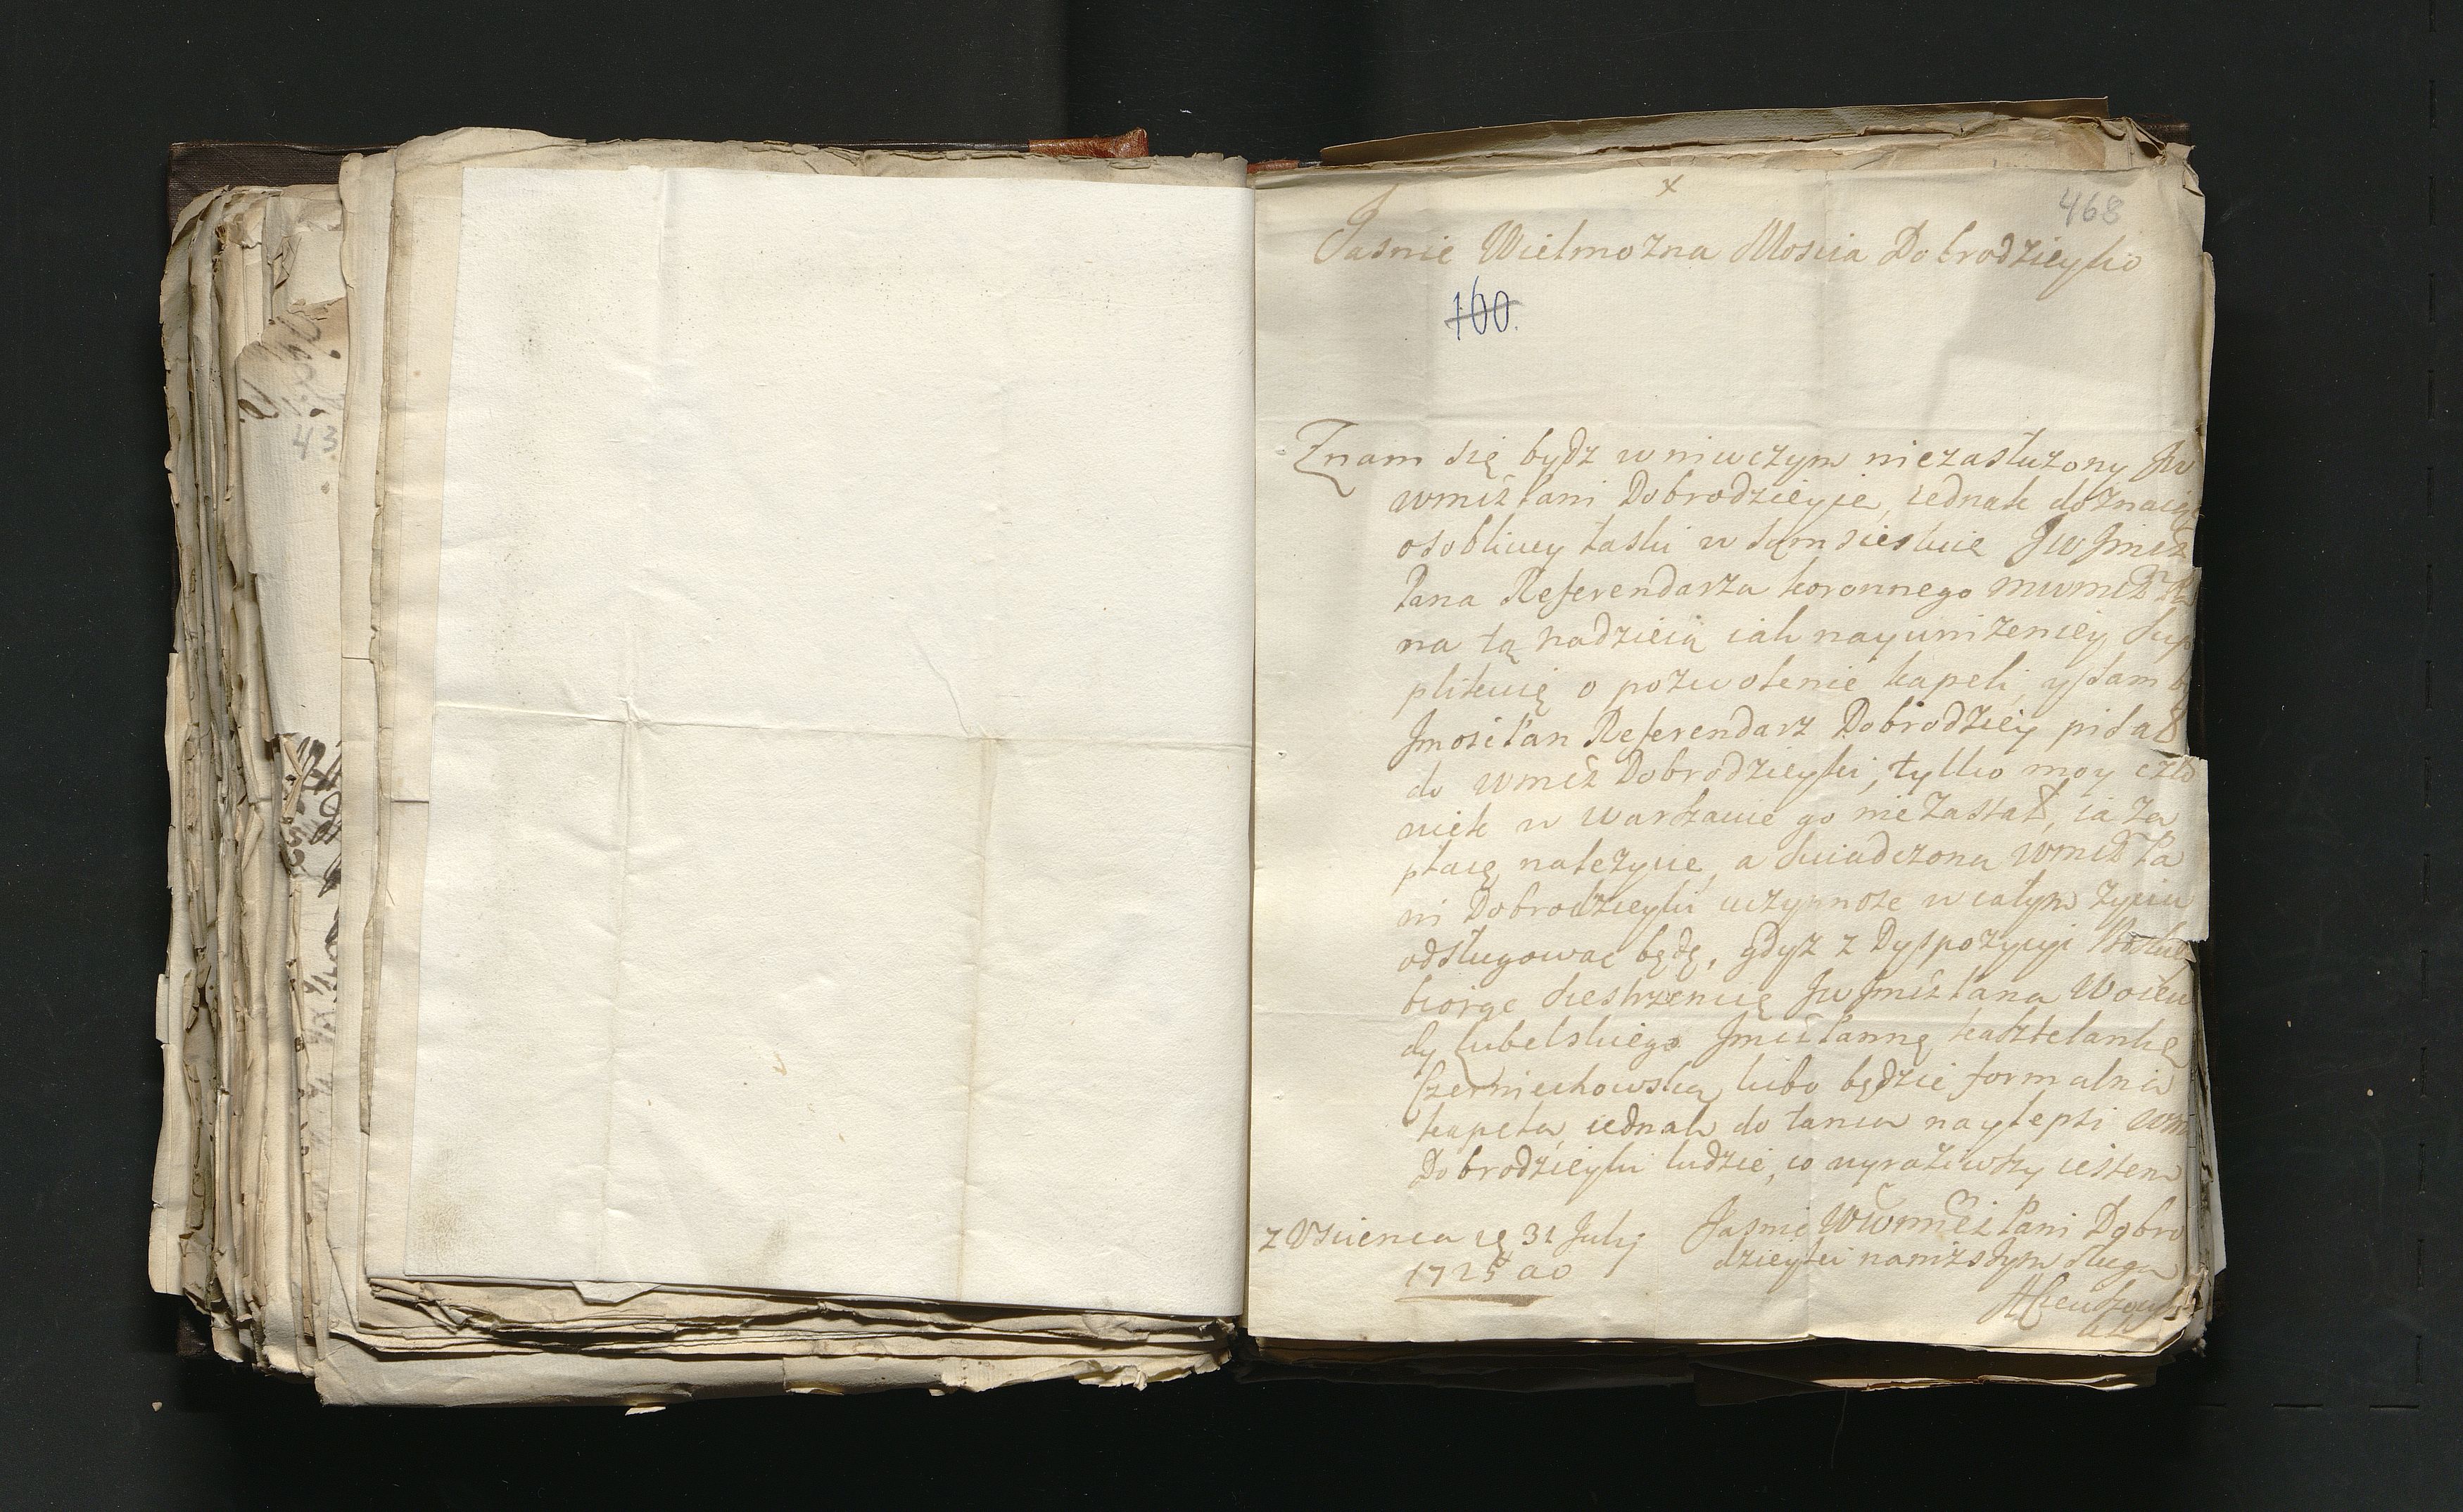 x
468
Jasnie Wielmozna Moscia Dobrodzieyko
100.
Znam się bydz w niwczym niezasłuzony Jw
wmci Pani Dobrodzieyce, iednak doznaiąc
osobliwey łaski w sąmsiestwie Jw Jmci
Pana Referendarza koronnego
na tą nadzieią iak nayunizeniey sup
plikuię o pozwolenie kapeli, y sam
Jmosci Pan Referendarz Dobrodziey pisał
do wmci Dobrodzieyki, tylko moy czło
wiek w Warszawie go nie zastał, ia za
płacę nalezycie, a swiadczona wmci Pa
ni Dobrodzieyki uczynnosc w całym zyciu
odsługowac będę, gdyz z Dyspozycyi Boskiey
biorąc siestrzenicę Jw Jmci Pana Woiewo
dy Lubelskiego Jmci Pannę kasztelankę
Czerniechowską lubo będzie formalna
kapela, iednak do tanca naylepsi wm
Dobrodzieyki ludzie, co wyraziwszy iestem
Jasnie W wmci Pani Dobro
dzieyki nanizszym sługą
z Uscienca 31 July
1725 ao